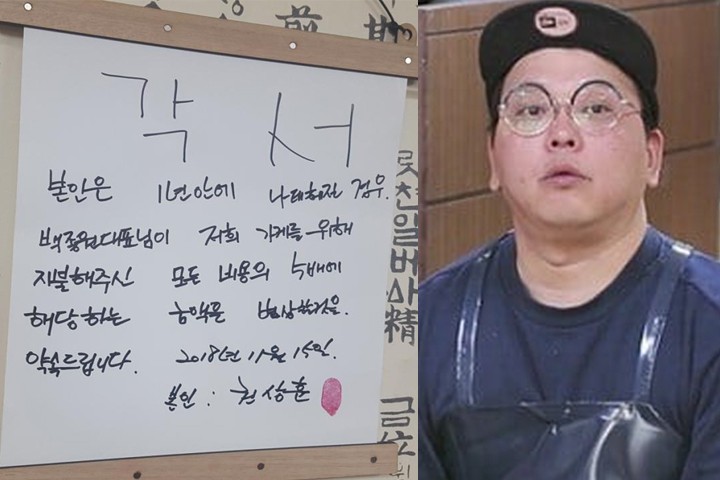 각 서
본인은 1년안에 나태해질 경우.
백종원대표님이 저희 가게를 위해
지불해주신 모든 비용의 5배에
해당하는 금액을 변상할것을.
약속드립니다. 2018년 11월 15일.
본인 : 권상훈